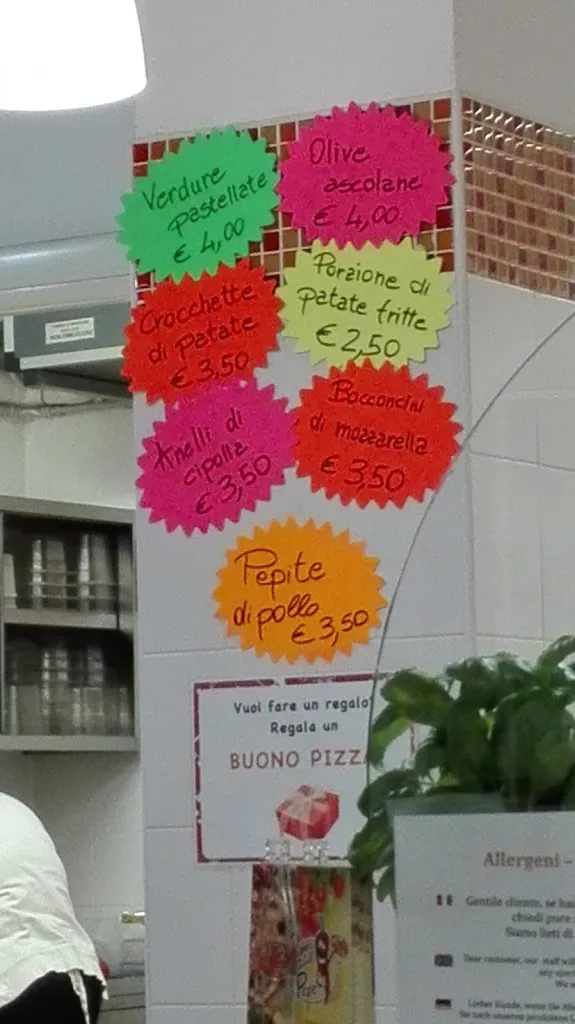 Verdure
pastellate
€ 4,00
Olive
ascolane
€ 4,00
Crocchette
di patate
€ 3,50
Porzione di
patate fritte
€ 2,50
Anelli di
cipolla
€ 3,50
Bocconcini
di mozzarella
€ 3,50
Pepite
di pollo
€ 3,50
Vuoi fare un regalo
Regala un
BUONO PIZZA
Allergeni -
Gentile cliente, se
chiedi pure
Siamo lieti di
Dear customer, our staff will
Lieber Kunde, wenn Sie